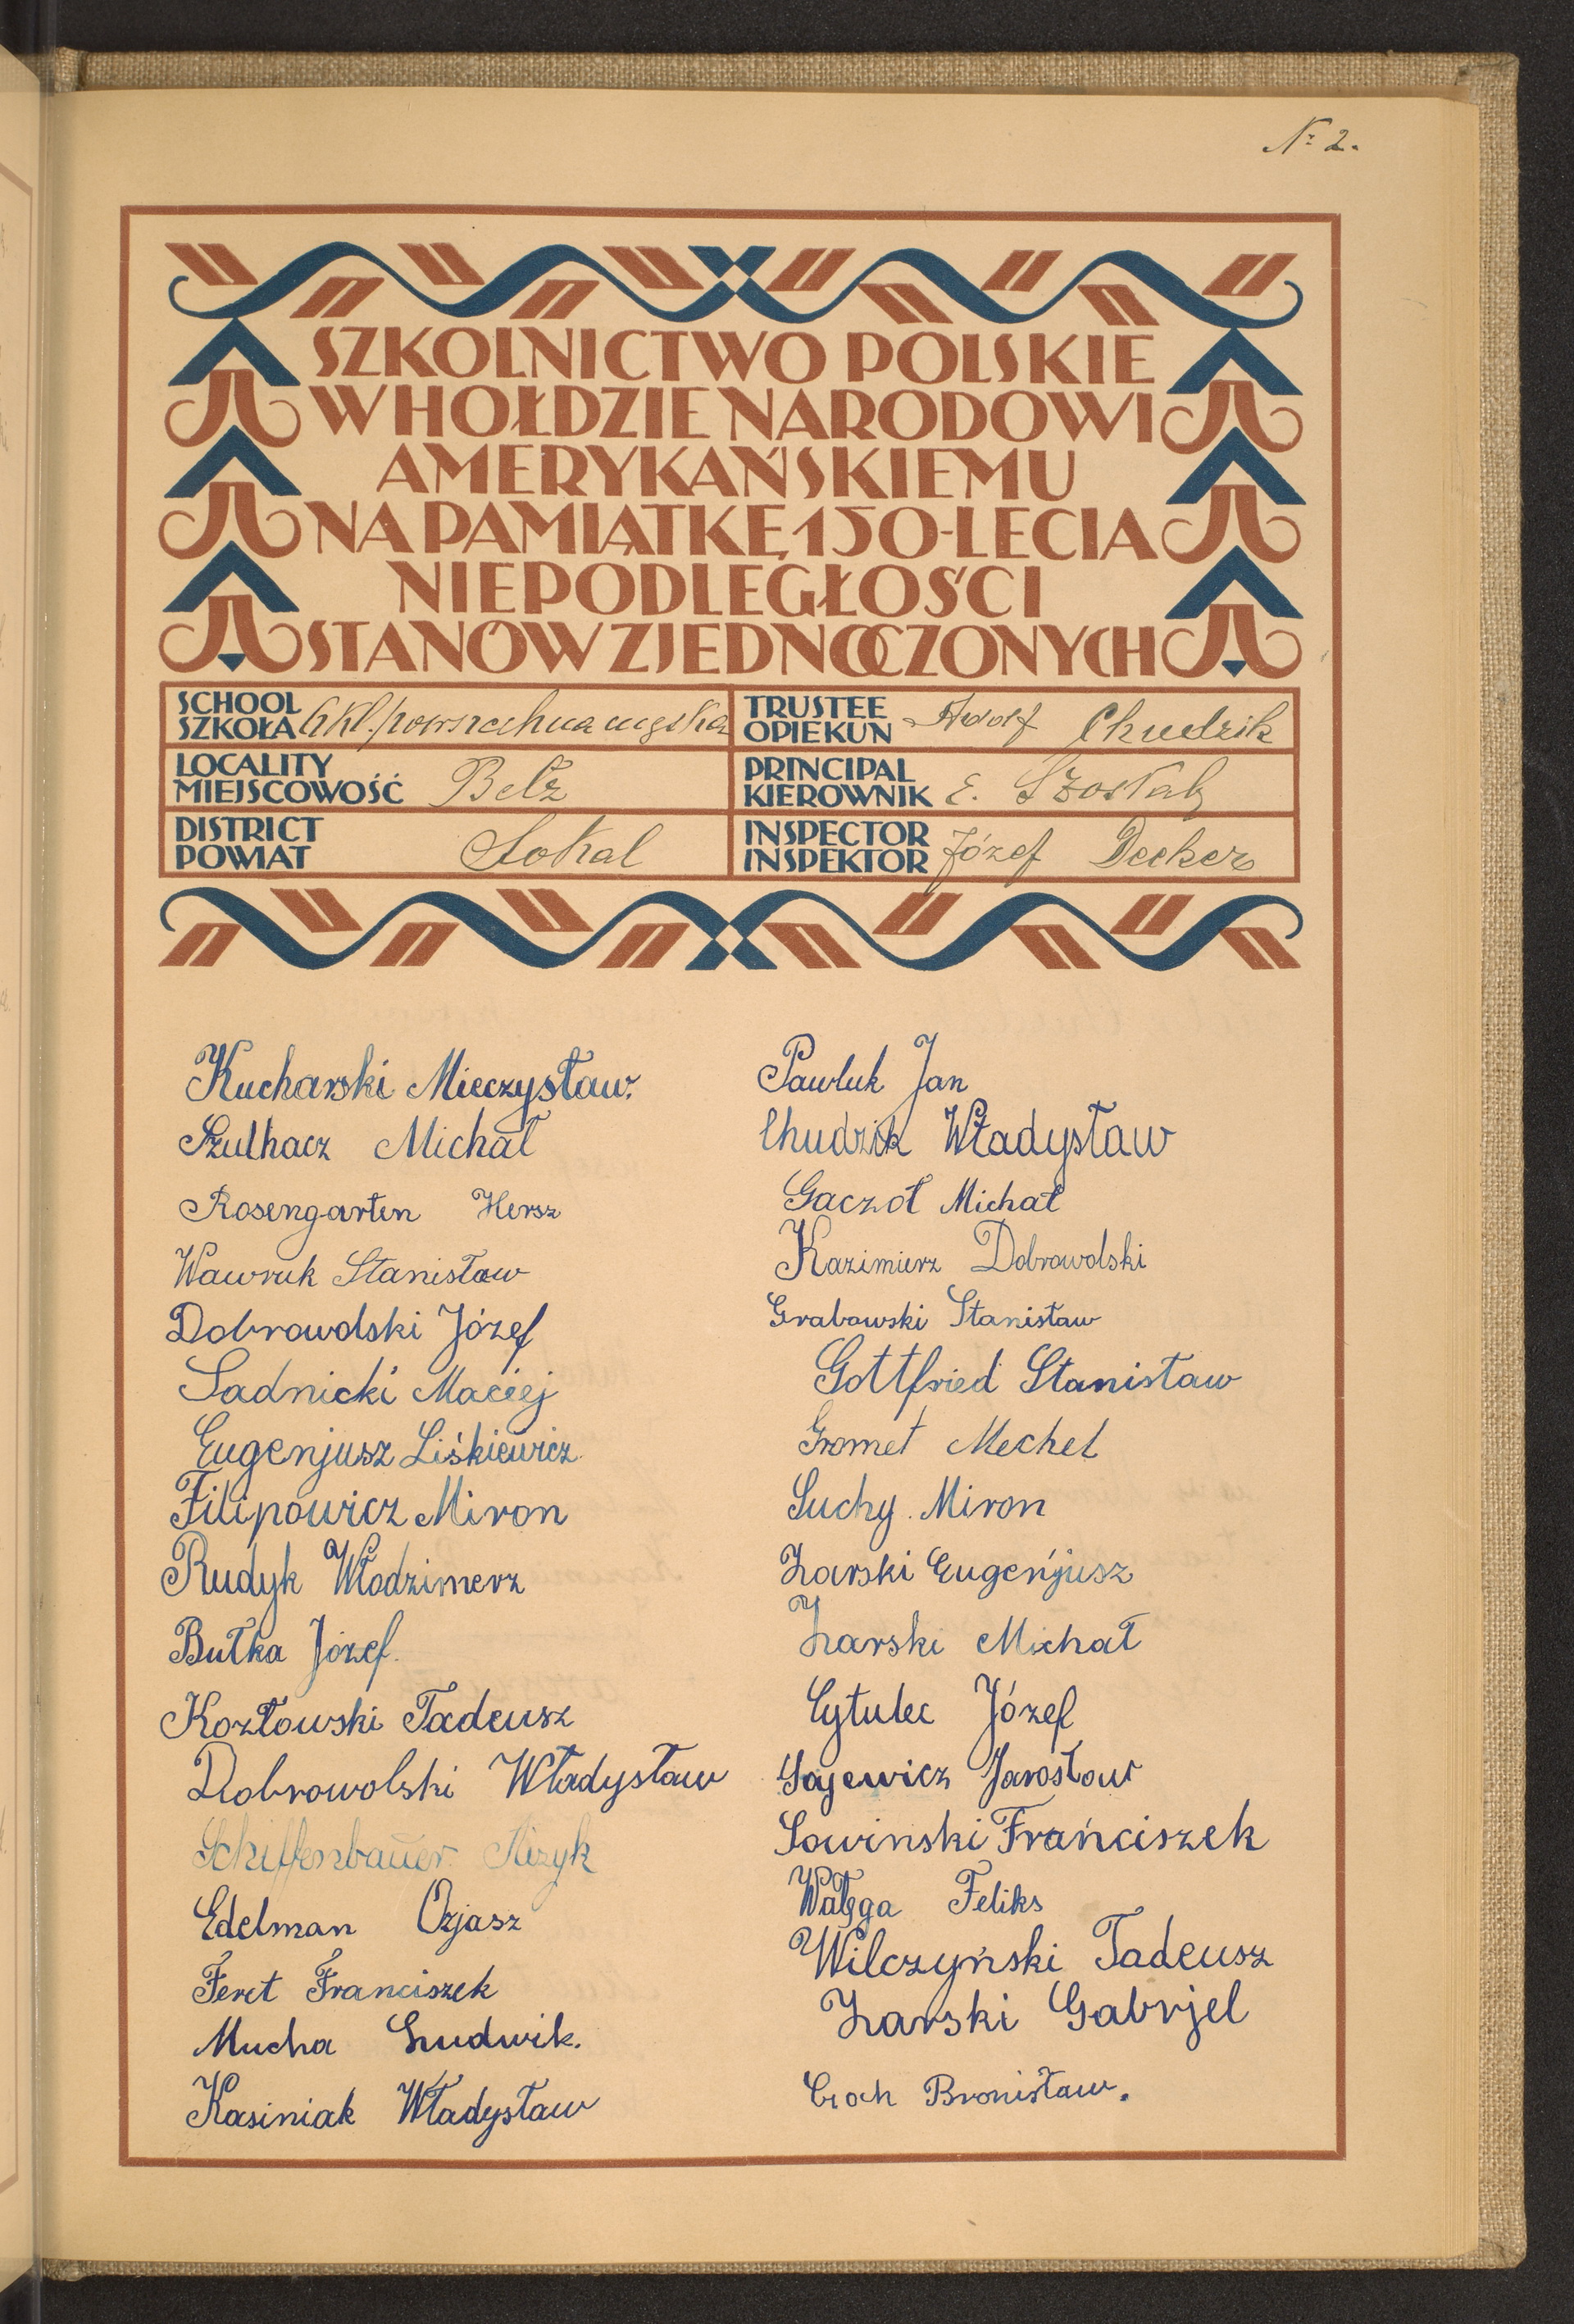 № 2.
SZKOLNICTWO POLSKIE
W HOŁDZIE NARODOWI
AMERYKAŃSKIEMU
NA PAMIĄTKĘ 150-LECIA
NIEPODLEGŁOŚCI
STANÓW ZJEDNOCZONYCH
SCHOOL
SZKOŁA 6kl. powszechna męska
TRUSTEE
OPIEKUN Adolf Chudzik
LOCALITY
MIEJSCOWOŚĆ Bełz
PRINCIPAL
KIEROWNIK E. Szostak
DISTRICT
POWIAT Sokal
INSPECTOR
INSPEKTOR Józef Decker
Kucharski Mieczysław.
Szulhacz Michał
Rosengarten Hersz
Wawruk Stanisław
Dobrowolski Józef
Sadnicki Maciej
Eugenjusz Liśkiewicz
Filipowicz Miron
Rudyk Włodzimerz
Bułka Józef.
Kozłowski Tadeusz
Dobrowolski Władysław
Schiffenbauer
Edelman Ozjasz
Feret Franciszek
Mucha Ludwik.
Kasiniak Władysław
Pawluk Jan
Chudzik Władysław
Gaczoł Michał
Kazimierz Dobrowolski
Grabowski Stanisław
Gottfried Stanisław
Gromet Mechel
Suchy Miron
Żarski Eugenjusz
Żarski Michał
Cytulec Józef
Gajewicz Jarosław
Sowinski Franciszek
Wałęga Feliks
Wilczyński Tadeusz
Żarski Gabrjel
Groch Bronisław.